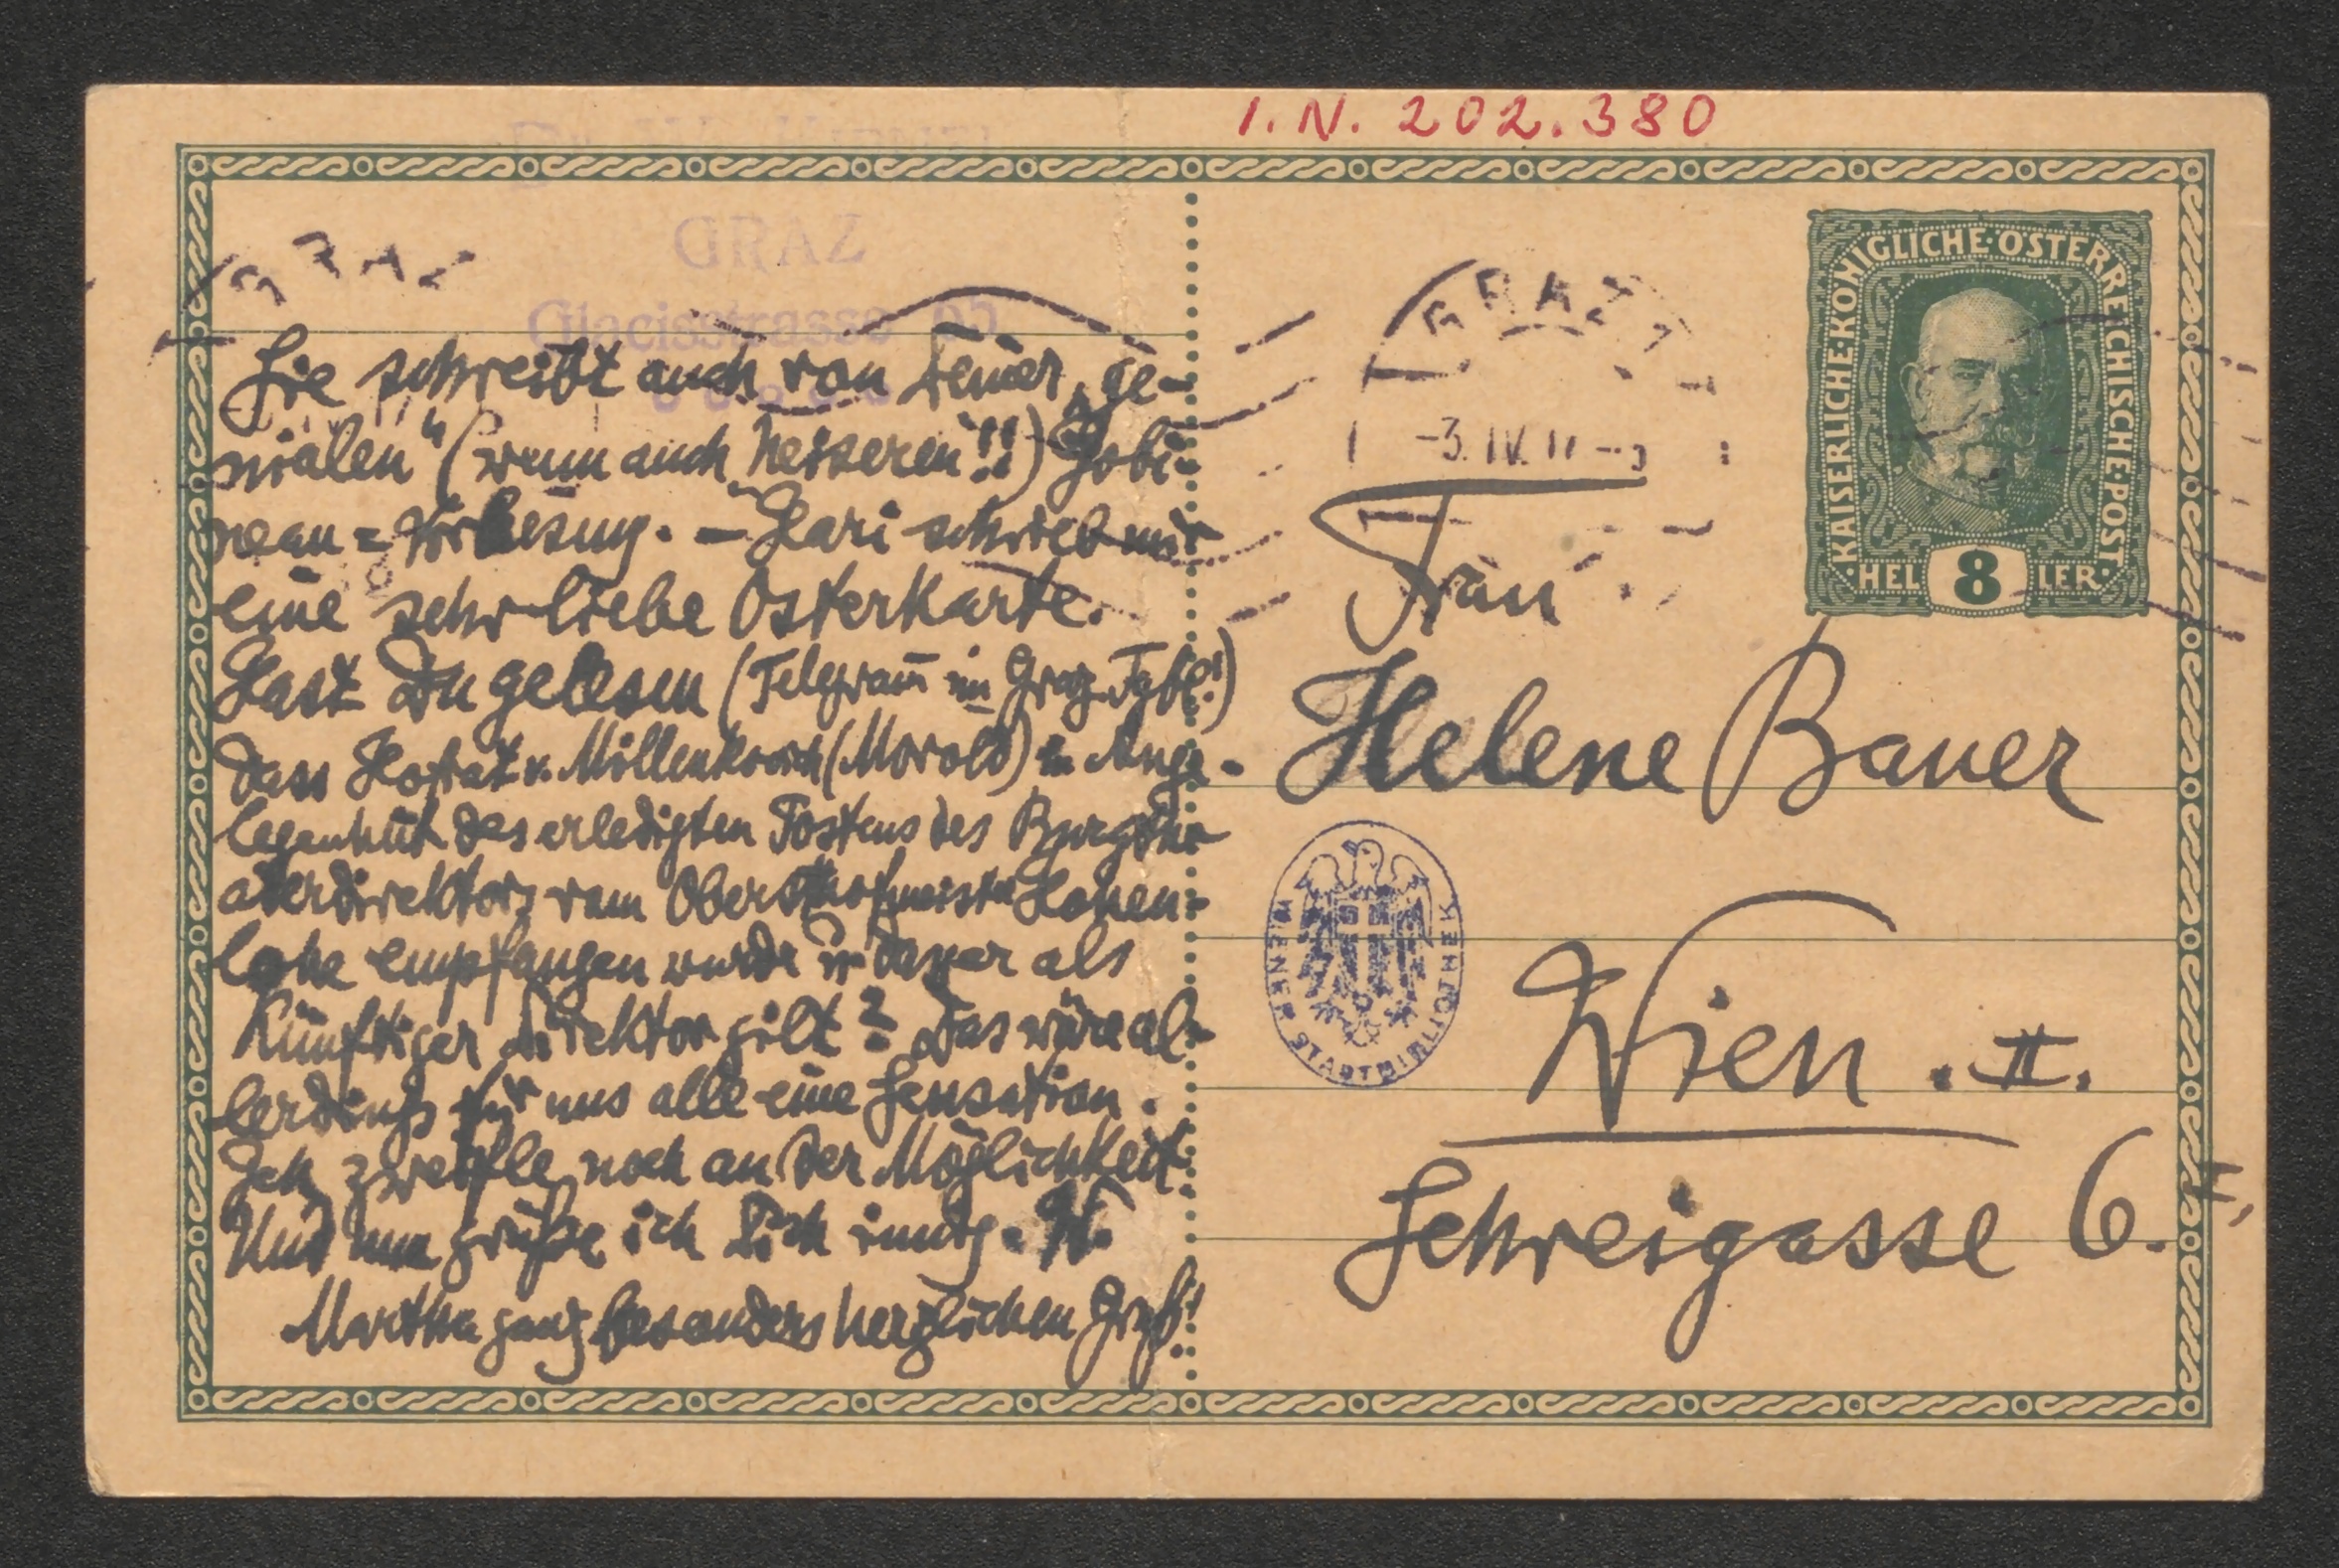 I.N. 202.380
GRAZ
Glacisstrasse 65
GRAZ
Sie schreibt auch von Deiner „ge-
nialen“ (wenn auch heiseren!!) Gobi-
neau=Vorlesung. – Hari schrieb mir
eine sehr liebe Osterkarte.
Hast Du gelesen (Telegram im Graz. Tgbl.!)
dass Hofrat v. Millenkovich (Morold) in Ange-
legenheit des erledigten Postens des Burgthe-
aterdirektors vom Obersthofmeister Hohen-
lohe empfangen wurde u. daher als
künftiger Direktor gilt? Das wäre al-
lerdings für uns alle eine Sensation.
Ich zweifle noch an der Möglichkeit.
Und nun grüße ich Dich innig. W.
Martha ganz besonders herzlichen Gruß!
GRAZ 1
-3.IV.
KAISERLICHE·KÖNIGLICHE·ÖSTERREICHISCHE·POST
HEL 8 LER
Frau
Helene Bauer
WIENER STADTBIBLIOTHEK
Wien. II.
Schreigasse 6.